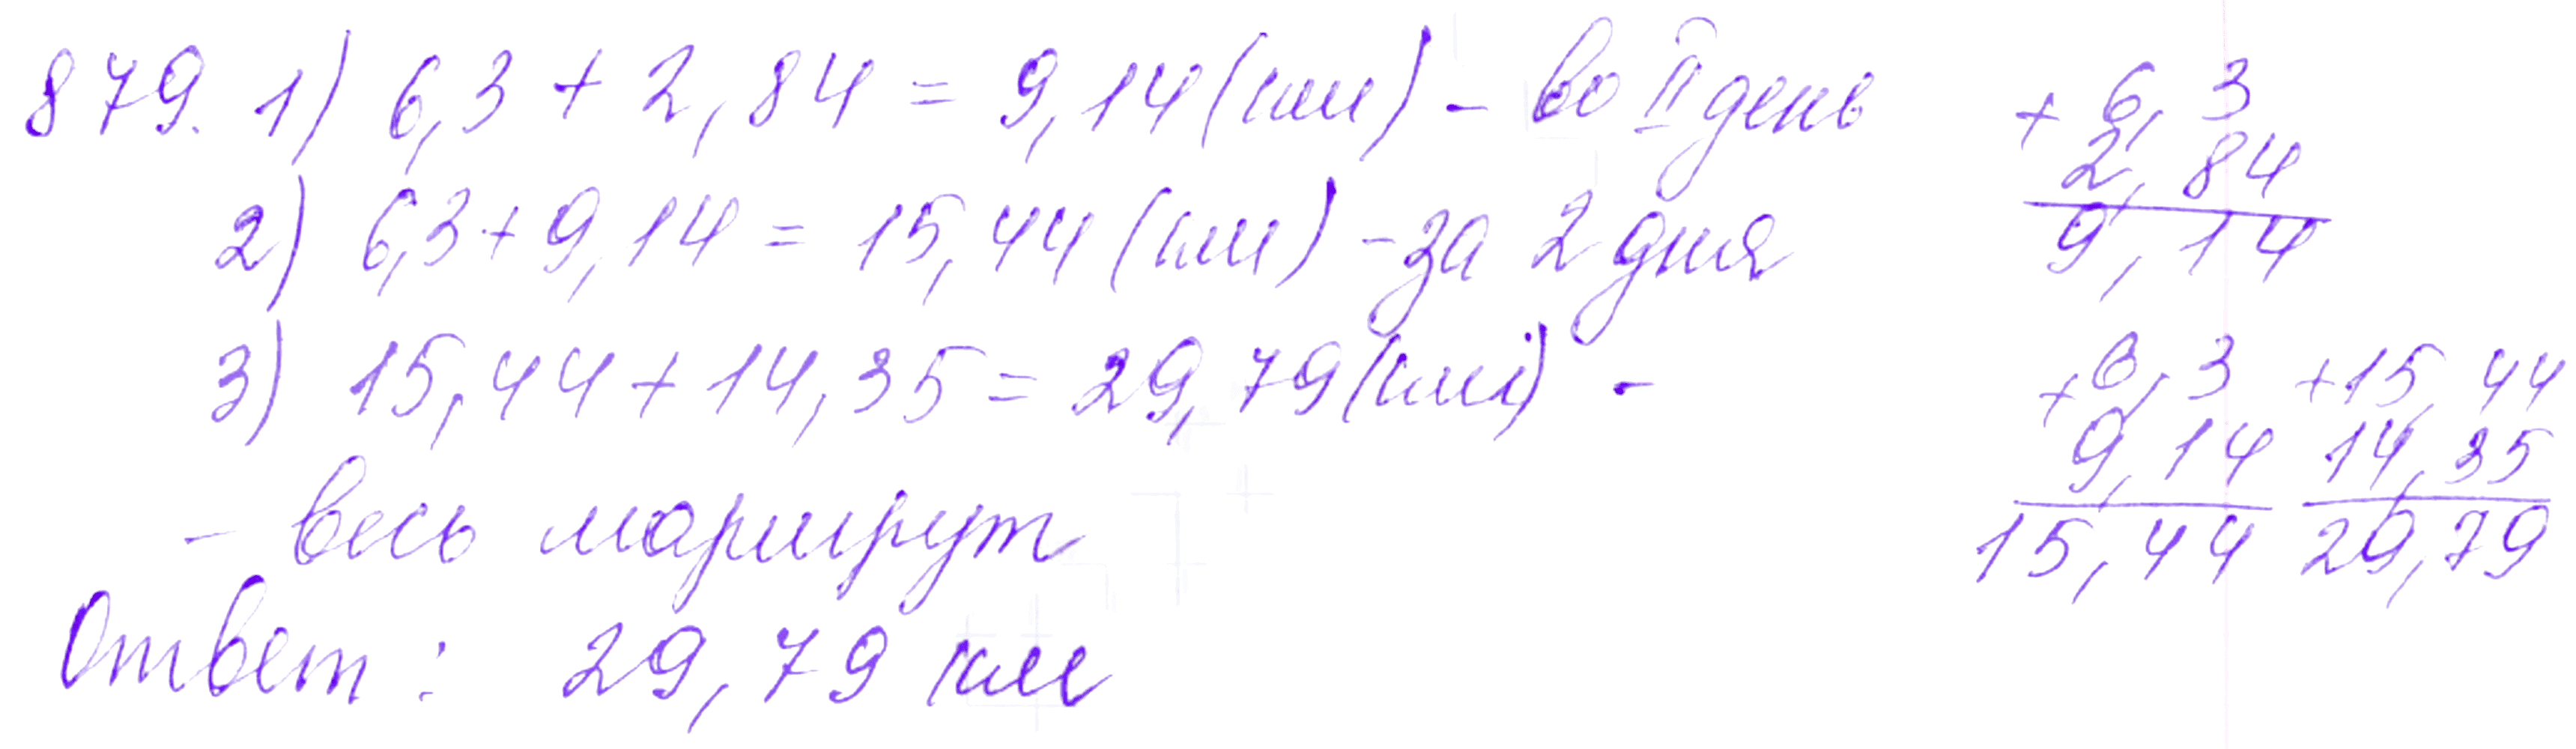 879. 1) 6,3 + 2,84 = 9,14 (км) - во II день
2) 6,3 + 9,14 = 15,44 (км) - за 2 дня
3) 15,44 + 14,35 = 29,79 (км) -
- весь маршрут
Ответ: 29,79 км
+ 6,3
2,84
9,14
+ 6,3
9,14
15,44
+ 15,44
14,35
29,79